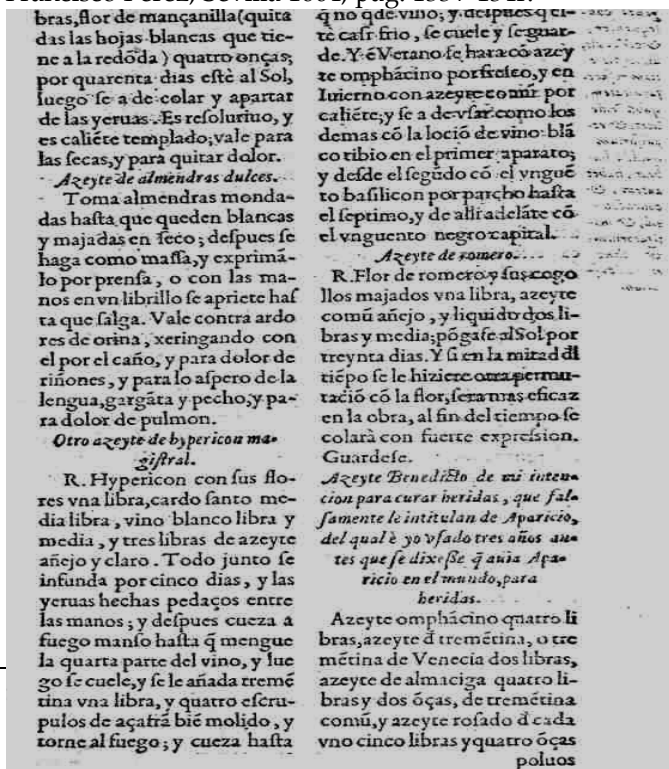 bras,flor de mançanilla(quita
das las hojas blancas que tie-
ne a la redõda) quatro onças;
por quarenta dias estè al Sol,
luego se a de colar y apartar
de las yeruas. Es resolutiuo, y
es caliẽte templado; vale para
las secas, y para quitar dolor.
Azeyte de almendras dulces.
Toma almendras monda-
das hasta que queden blancas
y majadas en seco; despues se
haga como massa, y exprimã-
lo por prensa, o con las ma-
nos en vn librillo se apriete has
ta que salga. Vale contra ardo
res de orina, xeringando con
el por el caño, y para dolor de
riñones, y para lo aspero de la
lengua, gargãta y pecho, y pa-
ra dolor de pulmon.
Otro azeyte de hypericon ma-
gistral.
R. Hypericon con sus flo-
res vna libra, cardo santo me-
dia libra, vino blanco libra y
media, y tres libras de azeyte
añejo y claro. Todo junto se
infunda por cinco dias, y las
yeruas hechas pedaços entre
las manos; y despues cueza a
fuego manso hasta q̃ mengue
la quarta parte del vino, y lue
go se cuele, y se le añada tremẽ
tina vna libra, y quatro escru-
pulos de açafrã biẽ molido, y
torne al fuego; y cueza hasta
q̃ no qde vino; y despues q̃ es-
tè casi frio, se cuele y se guar-
de. Y ẽ Verano se hara cõ azey
te omphácino por fresco, y en
Inuierno con azeyte comũ por
caliẽte; y se a de vsar como los
demas cõ la lociõ de vino blã
co tibio en el primer aparato;
y desde el segũdo cõ el vnguẽ
to basilicon por parcho hasta
el septimo, y de alli adelãte cõ
el vnguento negro capital.
Azeyte de romero.
R. Flor de romero y sus cogo
llos majados vna libra, azeyte
comũ añejo, y liquido dos li-
bras y media; põgase al Sol por
treynta dias. Y si en la mitad dl
tiẽpo se le hiziere otra permu-
taciõ cõ la flor, sera mas eficaz
en la obra, al fin del tiempo se
colarà con fuerte expresion.
Guardese.
Azeyte Benedicto de mi inten-
cion para curar heridas, que fal-
samente le intitulan de Aparicio,
del qual è yo vsado tres años an-
tes que se dixesse q̃ auia Apa-
ricio en el mundo, para
heridas.
Azeyte omphácino quatro li
bras, azeyte d̃ tremẽtina, o tre
mẽtina de Venecia dos libras,
azeyte de almaciga quatro li-
bras y dos õças, de tremẽtina
comũ, y azeyte rosado d̃ cada
vno cinco libras y quatro õças
poluos